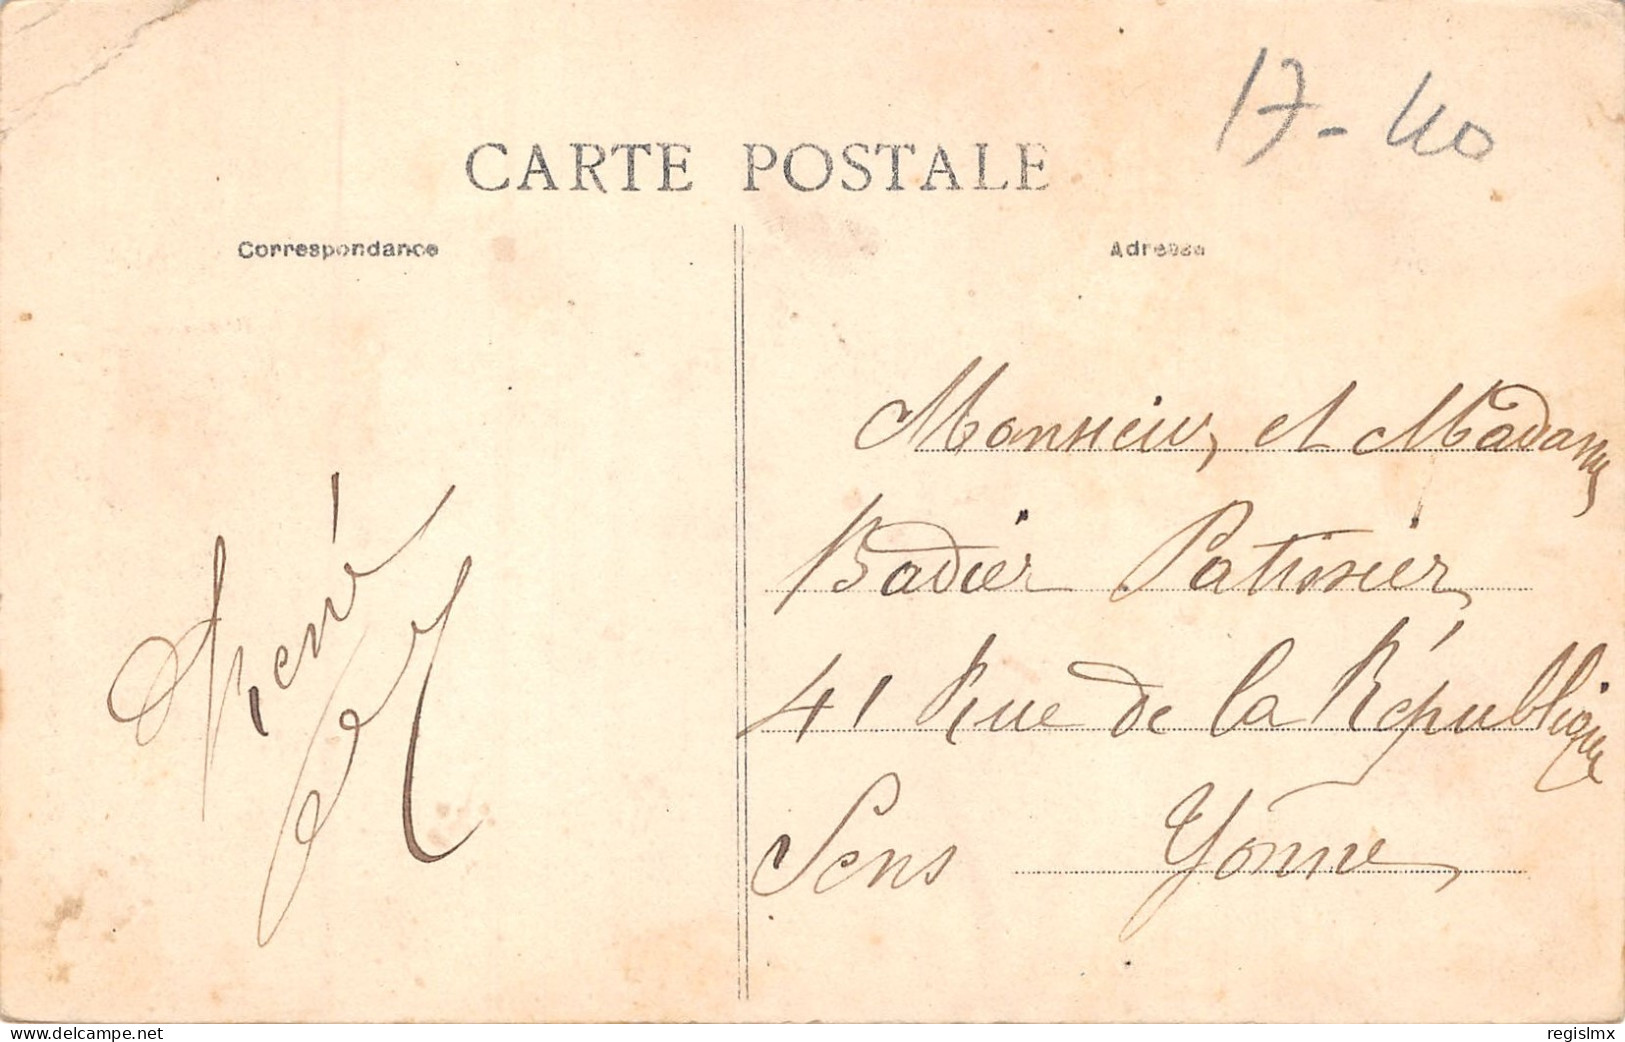 17 - 40
CARTE POSTALE
Correspondance
Adresse
Monsieur, et Madame
Badier Patissier
41 Rue de la République
Sens Yonne
René
www.delcampe.net
regislmx